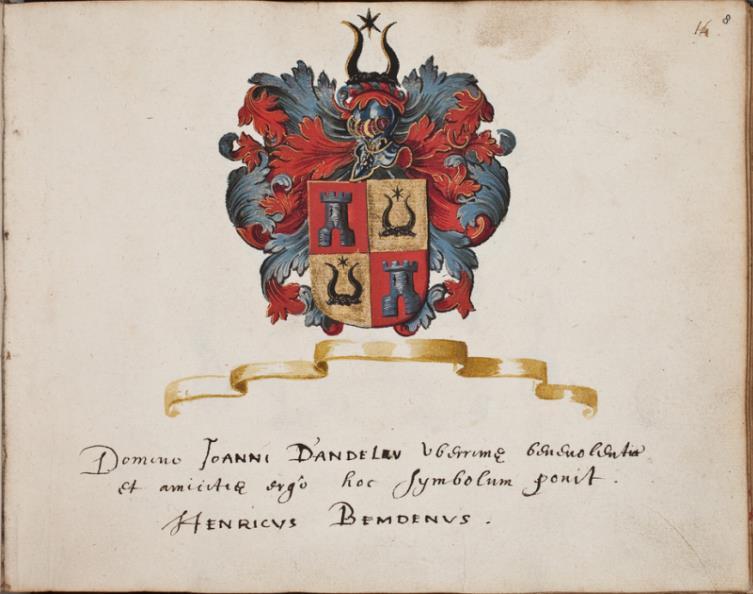 8
Domino IOANNI D'ANDELEV Vberrimę beneuolentię
et amicitię ergo hoc Symbolum ponit.
HENRICVS BEMDENVS.